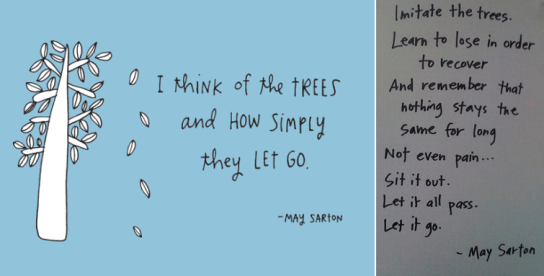 I think of the trees
and how simply
they let go.
- May Sarton
Imitate the trees.
Learn to lose in order
to recover
And remember that
nothing stays the
same for long
Not even pain...
Sit it out.
Let it all pass.
Let it go.
- May Sarton